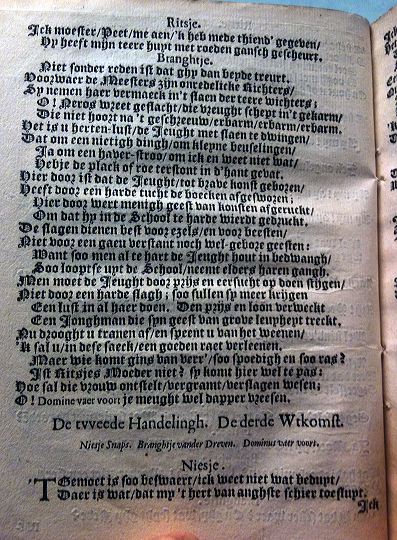 Ritsje.
Ick moester/Peet/me aen/'k heb mede thiend' gegeven/
Hy heeft mijn teere huyt met roeden gansch gescheurt.
Branghtje.
Niet sonder reden ist dat ghy dan beyde treurt.
Voorwaer de Meesters zijn onredelicke Richters/
Sy nemen haer vermaeck in 't slaen der teere wichters;
O! Neros wreet geslacht/die vreught schept in't gekarm/
Die niet hoort na 't geschreeuw/erbarm/erbarm/erbarm.
Het is u herten-lust/de Jeught met slaen te dwingen/
Dat om een nietigh dingh/om kleyne beuselingen/
Ja om een haver-stroo/om ick en weet niet wat/
Hebje de plack of roe terstont in d'hant gevat.
Hier door ist dat de Jeught/tot brave konst geboren/
Heeft door een harde tucht de boecken afgesworen;
Hier door wert menigh geest van konsten afgeruckt/
Om dat hy in de School te harde wierdt gedruckt.
De slagen dienen best voor ezels/en voor beesten/
Niet voor een gaeu verstant noch wel-gebore geesten:
Want soo men al te hart de Jeught hout in bedwangh/
Soo looptse uyt de School/neemt elders haren gangh.
Men moet de Jeught door prijs en eersucht op doen stijgen/
Niet door een harde slagh; soo sullen sy meer krijgen
Een lust in al haer doen. Den prijs en loon verweckt
Een Jonghman die syn geest van grove leuyheyt treckt.
Nu drooght u tranen af/en speent u van het weenen/
Ik sal u/in dese saeck/een goeden raet verleenen.
Maer wie komt gins van verr'/soo spoedigh en soo ras?
Ist Ritsjes Moeder niet? sy komt hier wel te pas:
Hoe sal die vrouw ontstelt/vergramt/verslagen wesen;
O! Domine vaer voort je meught wel dapper vreesen.
De tweede Handelingh. De derde Wtkomst.
Nietsje Snaps. Branghtje vander Dreven. Dominus vaer voort.
Niesje.
'T Gemoet is soo beswaert/ick weet niet wat beduyt/
Daer is wat/dat my 't hert van anghste schier toesluyt.
Ick